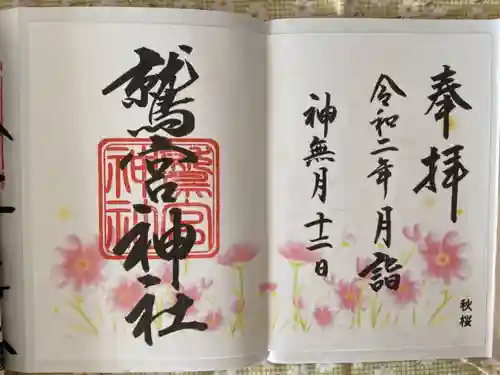 奉拝
令和二年 月詣
神無月十二日
秋桜
鷲宮神社
鷲宮
神社